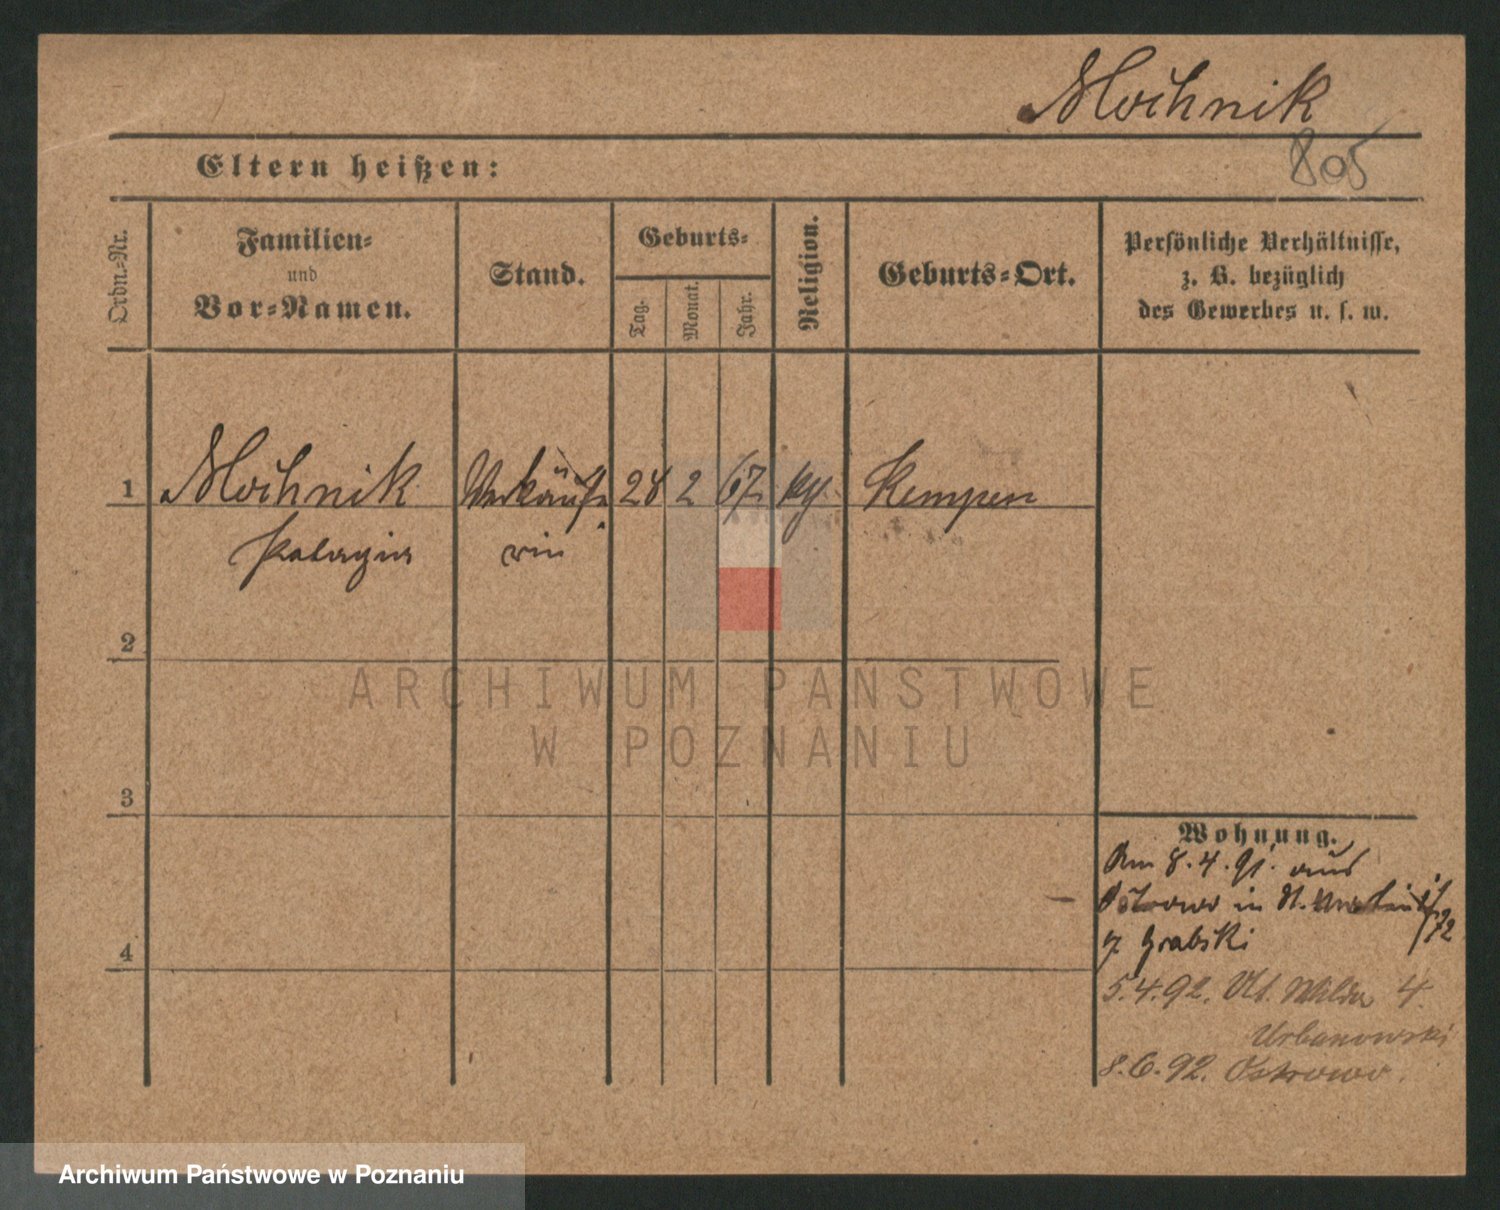 Mochnik
805
Eltern heißen:
Ordn.-Nr.
Familien-
und
Vor-Namen.
Stand.
Geburts-
Tag.
Monat.
Jahr.
Religion.
Geburts-Ort.
Persönliche Verhältnisse,
z. B. bezüglich
des Gewerbes u. s. w.
1 Mochnik Verkäufe 28 2 67 Kempen
Pelagia rin
2
ARCHIWUM PAŃSTWOWE
W POZNANIU
3
Wohnung.
Am 8.4.91. aus
Ostrowo in St. 72
4 Grabski
5.4.92. Wilda 4.
Urbanowski
8.6.92. Ostrowo.
Archiwum Państwowe w Poznaniu